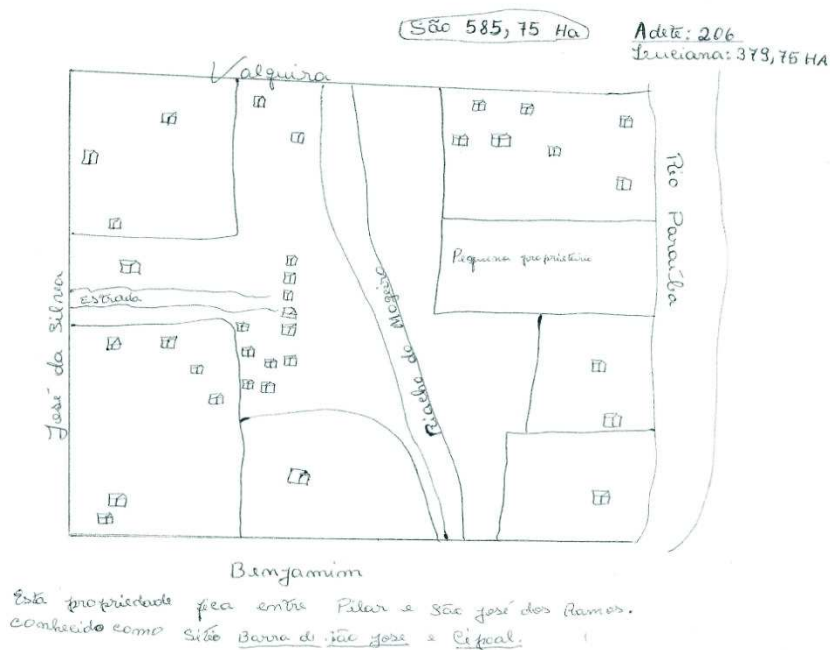 São 585,75 Ha
Adete: 206
Luciana: 379,75 HA
Valquira
Rio Paraíba
Pequena proprietário
Estrada
José da Silvia
Riacho do Mogeiro
Benjamim
Esta propriedade fica entre Pilar e São José dos Ramos.
conhecido como Sitio Barra de são jose e Cipoal.